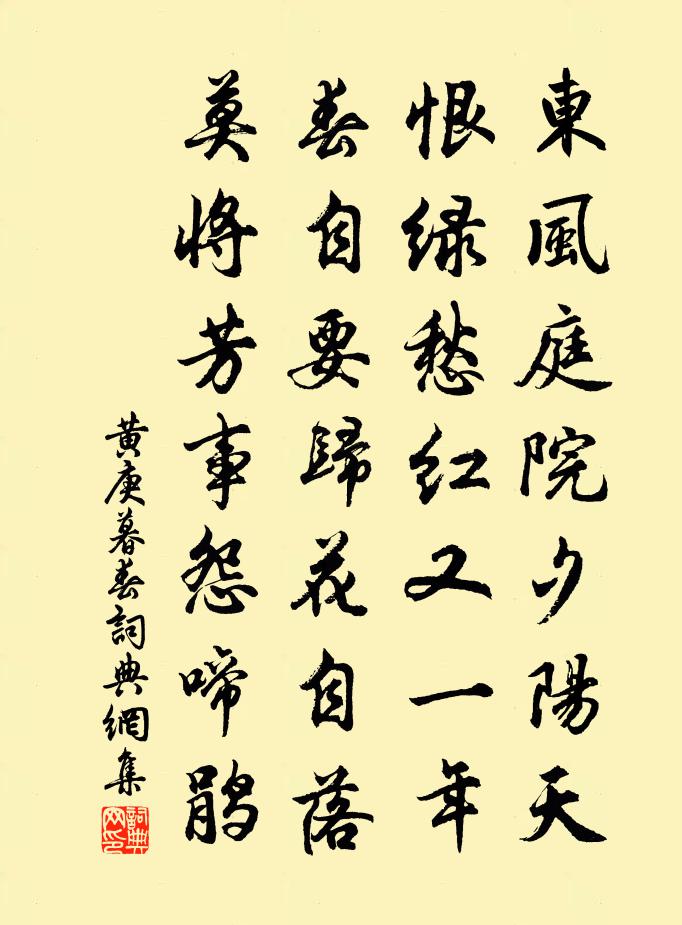 東風庭院夕陽天
恨緑愁紅又一年
春自要歸花自落
莫將芳事怨啼鵑
黄庚暮春詞典網集
詞典網印